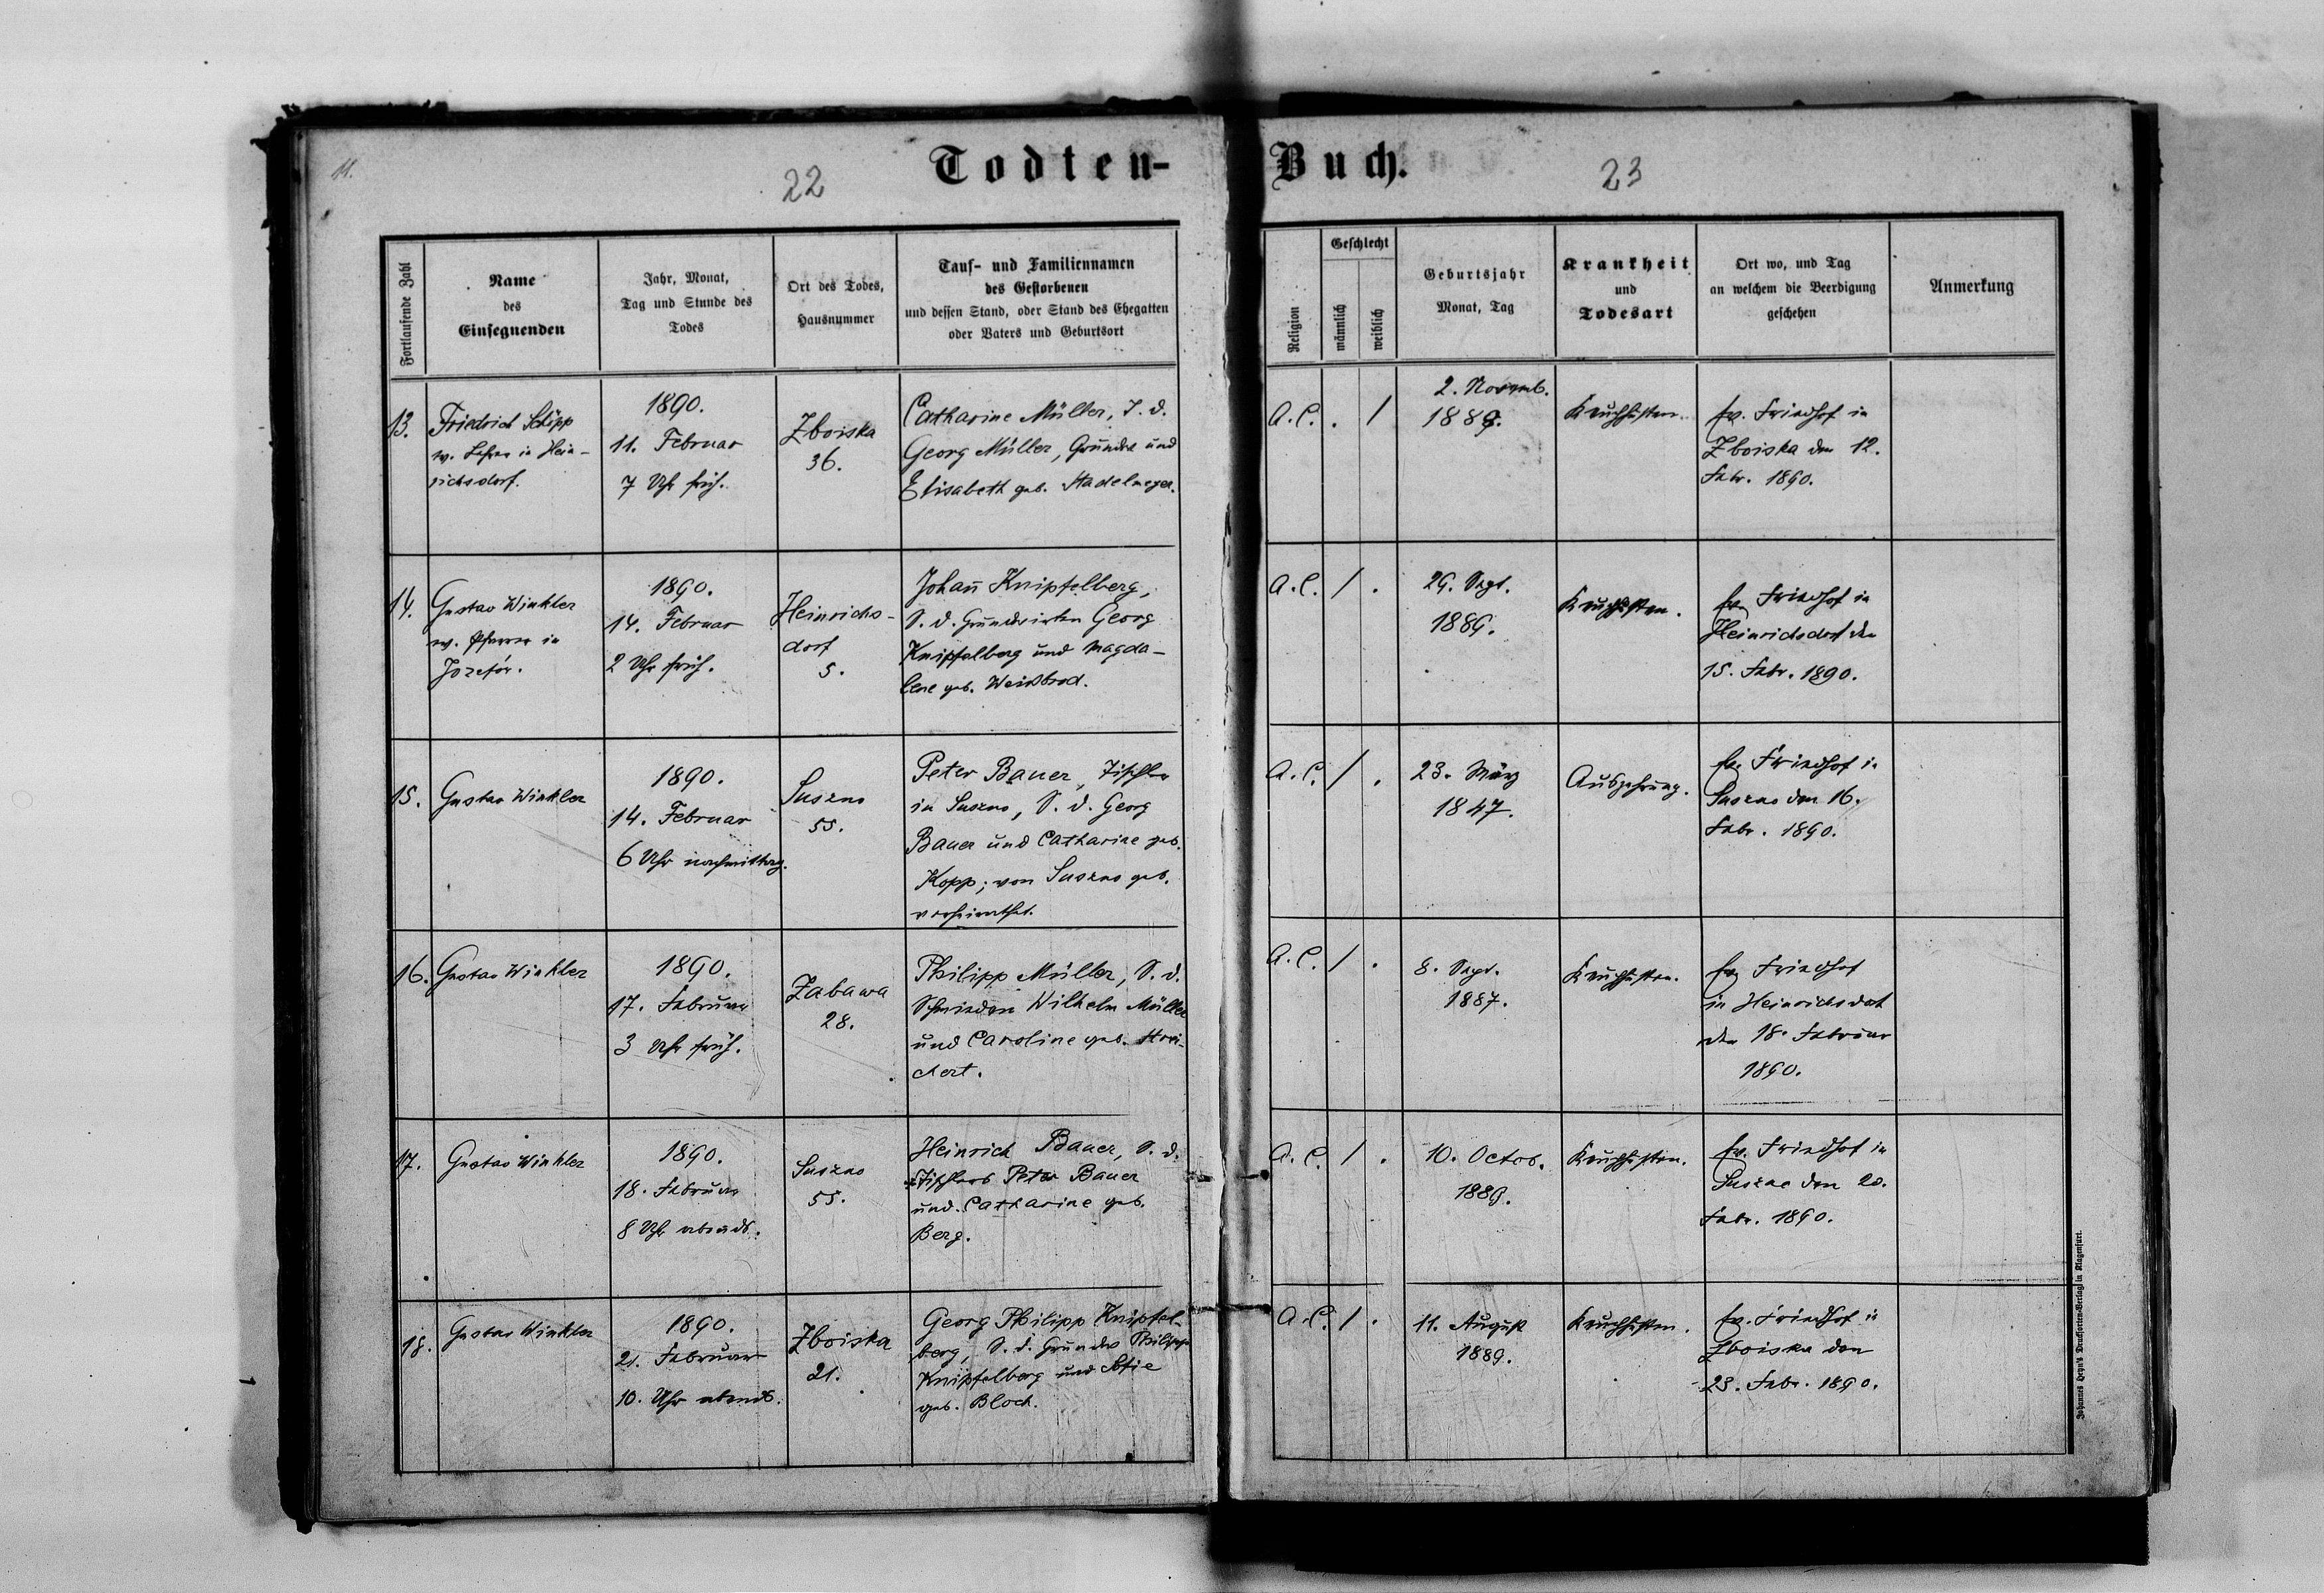 11.
22
Todten-
Buch.
23
Fortlaufende Zahl
Name
des
Einsegnenden
Jahr, Monat,
Tag und Stunde des
Todes
Ort des Todes,
Hausnummer
Tauf- und Familiennamen
des Gestorbenen
und dessen Stand, oder Stand des Ehegatten
oder Vaters und Geburtsort
Religion
Geschlecht
männlich
weiblich
Geburtsjahr
Monat, Tag
Krankheit
und
Todesart
Ort wo, und Tag
an welchem die Beerdigung
geschehen
Anmerkung
13.
Friedrich Schipp
ev. Lehrer in Hein-
richsdorf.
1890.
11. Februar
7 Uhr früh.
Zboiska
36.
Catharine Müller, T. d.
Georg Müller, Grundw und
Elisabeth geb. Stadelmeyer.
A.C.
.
/
2. Novemb.
1889.
Keuchhusten.
ev. Friedhof in
Zboiska den 12.
Febr. 1890.
14.
Gustav Winkler
ev. Pfarrer in
Józefów.
1890.
14. Februar
2 Uhr früh.
Heinrichs-
dorf
5.
Johañ Knipfelberg,
S. d. Grundwirten Georg
Knipfelberg und Magda-
lene geb. Weißbrod.
A.C.
/
.
29. Sept.
1889.
Keuchhusten.
ev. Friedhof in
Heinrichsdorf den
15. Febr. 1890.
15.
Gustav Winkler
1890.
14. Februar
6 Uhr nachmittag.
Suszno
55.
Peter Bauer, Tischler
in Suszno, S. d. Georg
Bauer und Catharine geb.
Kopp; von Suszno geb.
verheirathet.
A.C.
/
.
23. März
1847.
Auszehrung.
ev. Friedhof in
Suszno den 16.
Febr. 1890.
16.
Gustav Winkler
1890.
17. Februar
3 Uhr früh.
Zabawa
28.
Philipp Müller, S. d.
Schmieden Wilhelm Müller
und Caroline geb. Strei-
chert.
A.C.
/
.
8. Sept.
1887.
Keuchhusten.
ev. Friedhof
in Heinrichsdorf
den 18. Februar
1890.
17.
Gustav Winkler
1890.
18. Februar
8 Uhr abends.
Suszno
55.
Heinrich Bauer, S. d.
Tischlers Peter Bauer
und Catharine geb.
Berg.
A.C.
/
.
10. Octob.
1889.
Keuchhusten.
ev. Friedhof in
Suszno den 20.
Febr. 1890.
18.
Gustav Winkler
1890.
21. Februar
10. Uhr abends.
Zboiska
21.
Georg Philipp Knipfel-
berg, S. d. Grundw Philipp
Knipfelberg und
geb. Bloch.
A.C.
/
.
11. August
1889.
Keuchhusten.
ev. Friedhof in
Zboiska den
23. Febr. 1890.
Johannes Heyn's Drucksorten-Verlag in Klagenfurt.